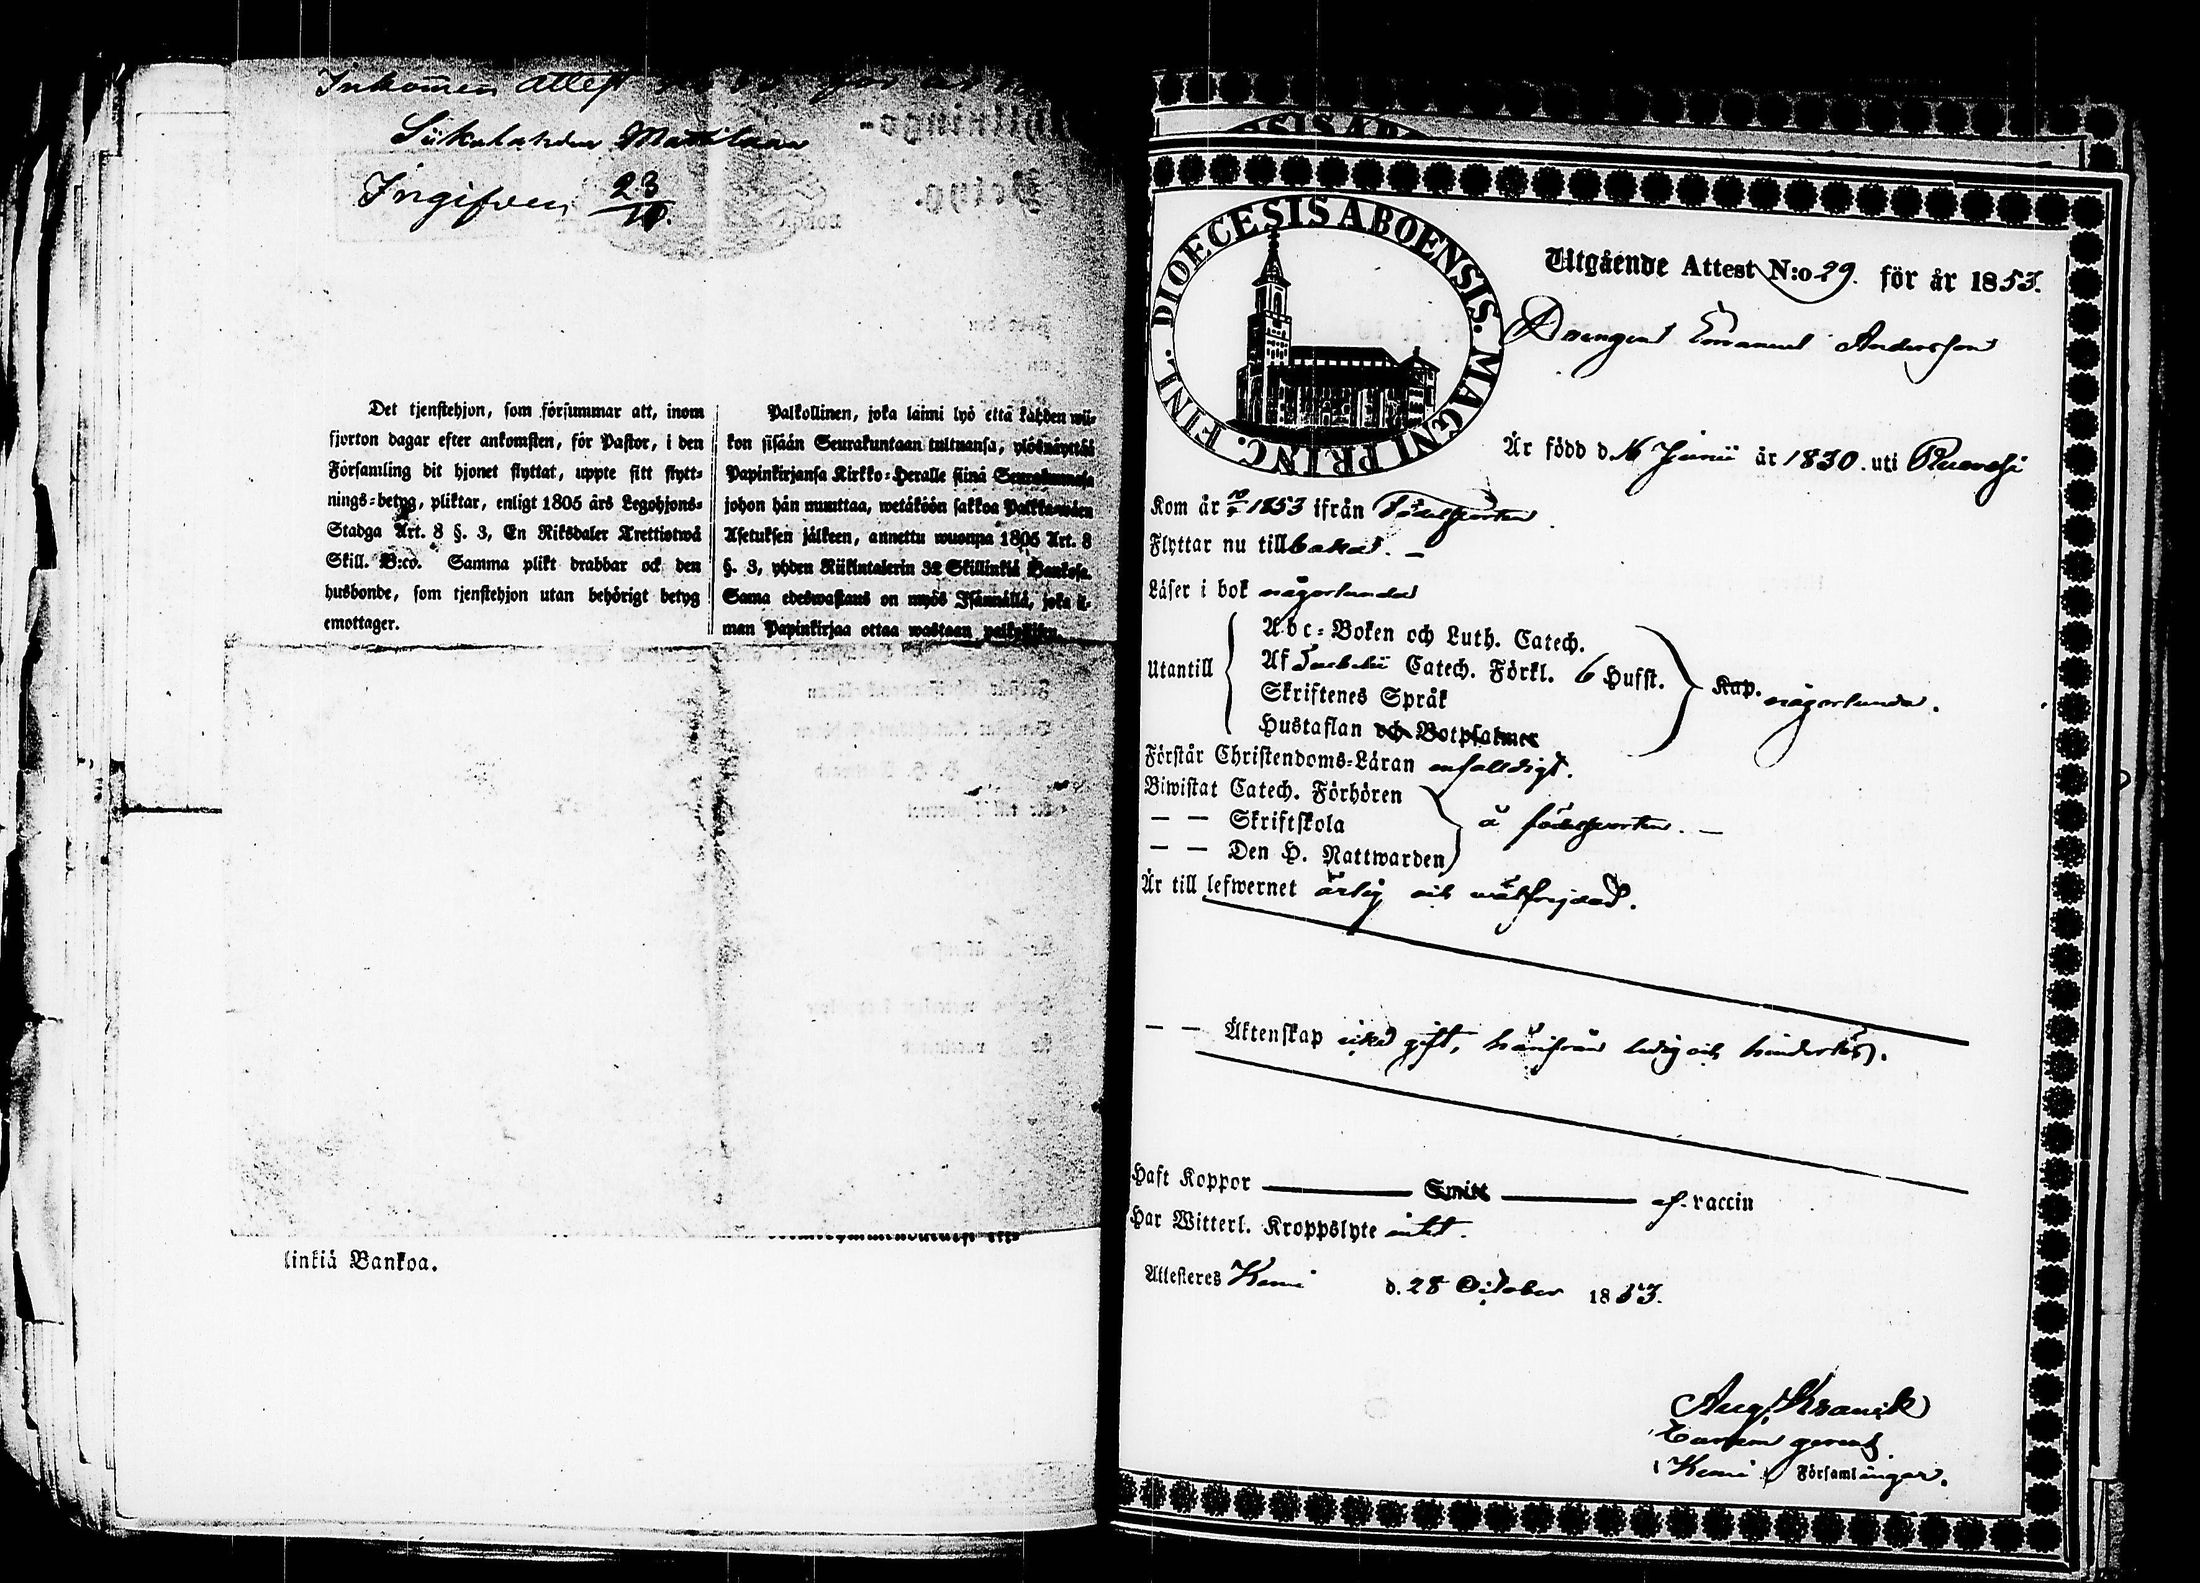 Inkommen Attest
Siikalahden Mattilaan
Ingifven 23/10.
Det tjenstehjon, som försummar att, inom
fjorton dagar efter ankomsten, för Pastor, i den
Församling dit hjonet flyttat, uppte sitt flytt-
nings=betyg, pliktar, enligt 1805 års Legohjons=
Stadga Art. 8 §. 3, En Riksdaler Trettiotwå
Skill. B:co. Samma plikt drabbar ock den
husbonde, som tjenstehjon utan behörigt betyg
emottager.
Palkollinen, joka laimi lyö että kahden wii-
kon sisään Seurakuntaan tultuansa, ylösnäyttää
Papinkirjansa Kirkko=Heralle siinä Seurakunnasa
johon hän muuttaa, wetäköön sakkoa Palkka=wäen
Asetuksen jälkeen, annettu wuonna 1805 Art. 8
§. 3, yhden Riikintalerin 32 Skillinkiä Bankosa.
Sama edeswastaus on myös Isännällä, joka il-
man Papinkirjaa ottaa wastaan palkollisen.
linkiä Bankoa.
DIOECESIS ABOENSIS. MAGNI PRINC. FINL.
Utgående Attest N:o 29. för år 1853.
Drengen Emanuel Andersson
Är född d. 16 Junii år 1830. uti Ruovesi
Kom år 1853 ifrån Födelseorten
Flyttar nu tillbakas. —
Läser i bok någorlunda
Utantill
Abc=Boken och Luth. Catech.
Af Catech. Förkl. 6 Hufst.
Skriftenes Språk
Hustaflan och Botpsalmer
Kap. någorlunda.
Förstår Christendoms=Läran enfalldigt.
Biwistat Catech. Förhören
— — Skriftskola
— — Den H. Nattwarden
å födelseorten. —
Är till lefwernet ärlig och wälfrejdad.
— — Äktenskap icke gift, härifrån ledig och hinderlös.
Haft Koppor Smitt af vaccin
Har Witterl. Kroppslyte intet.
Attesteres Kemi d. 28 October 1853.
Aug. Kranck
Curam gerens
i Kemi Församlingar.